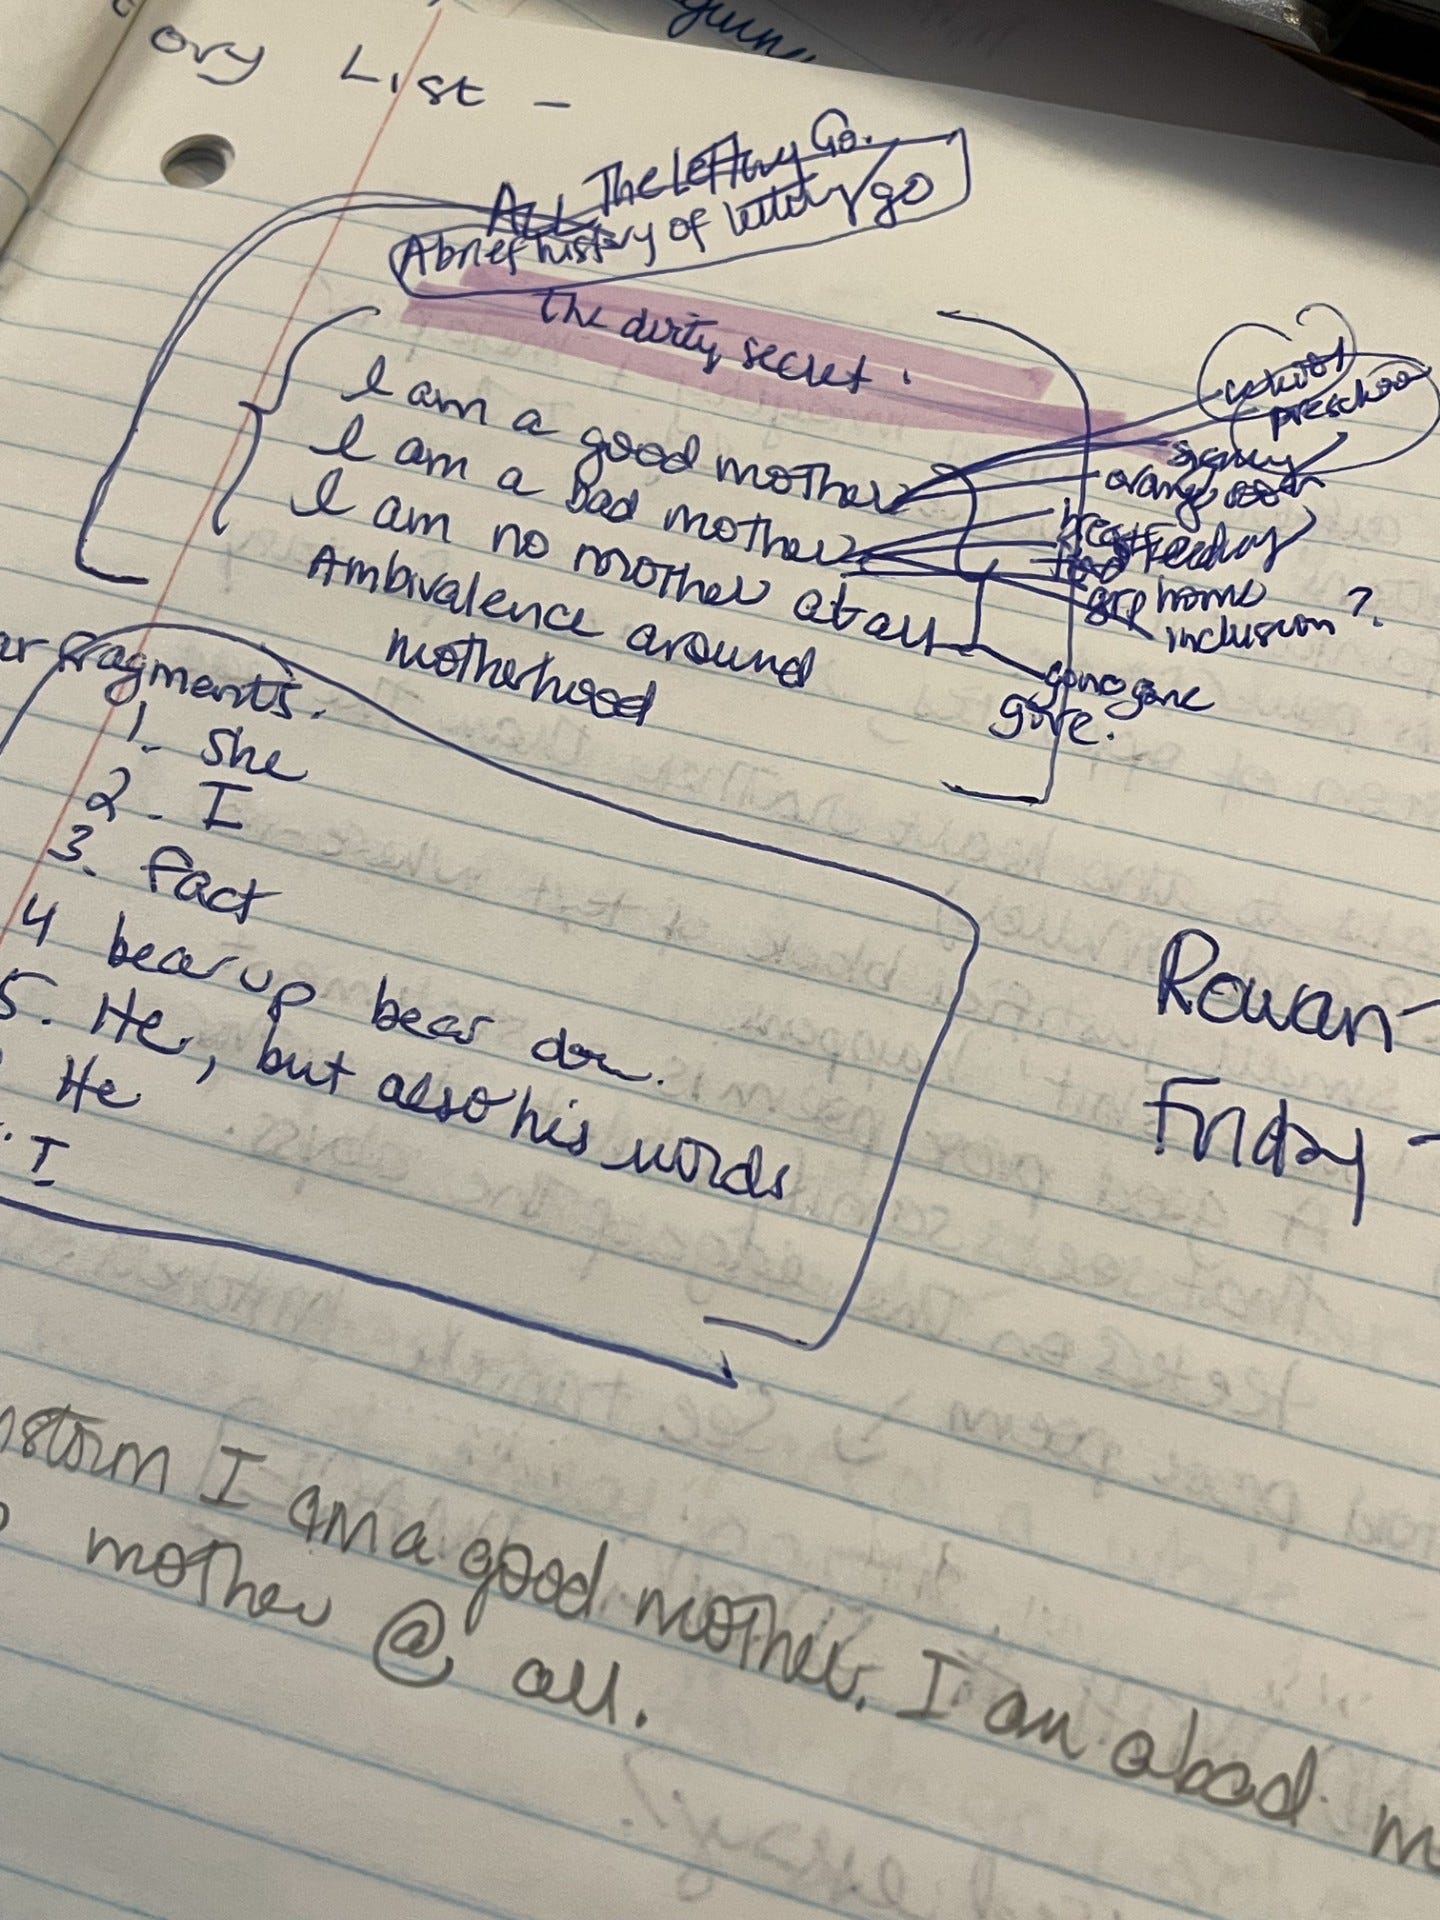 ory List -
All The Letting Go.
A brief history of letting go
the dirty secret.
I am a good mother
I am a bad mother
I am no mother at all
Ambivalence around
motherhood
preschool
breastfeeding
food
grp home
inclusion?
gone gone
gone.
ar fragments.
1. she
2. I
3. fact
4 bear up bear down.
5. He, but also his words
He
I
Rowan-
Friday -
nstorm I am a good mother. I am a bad m
mother @ all.